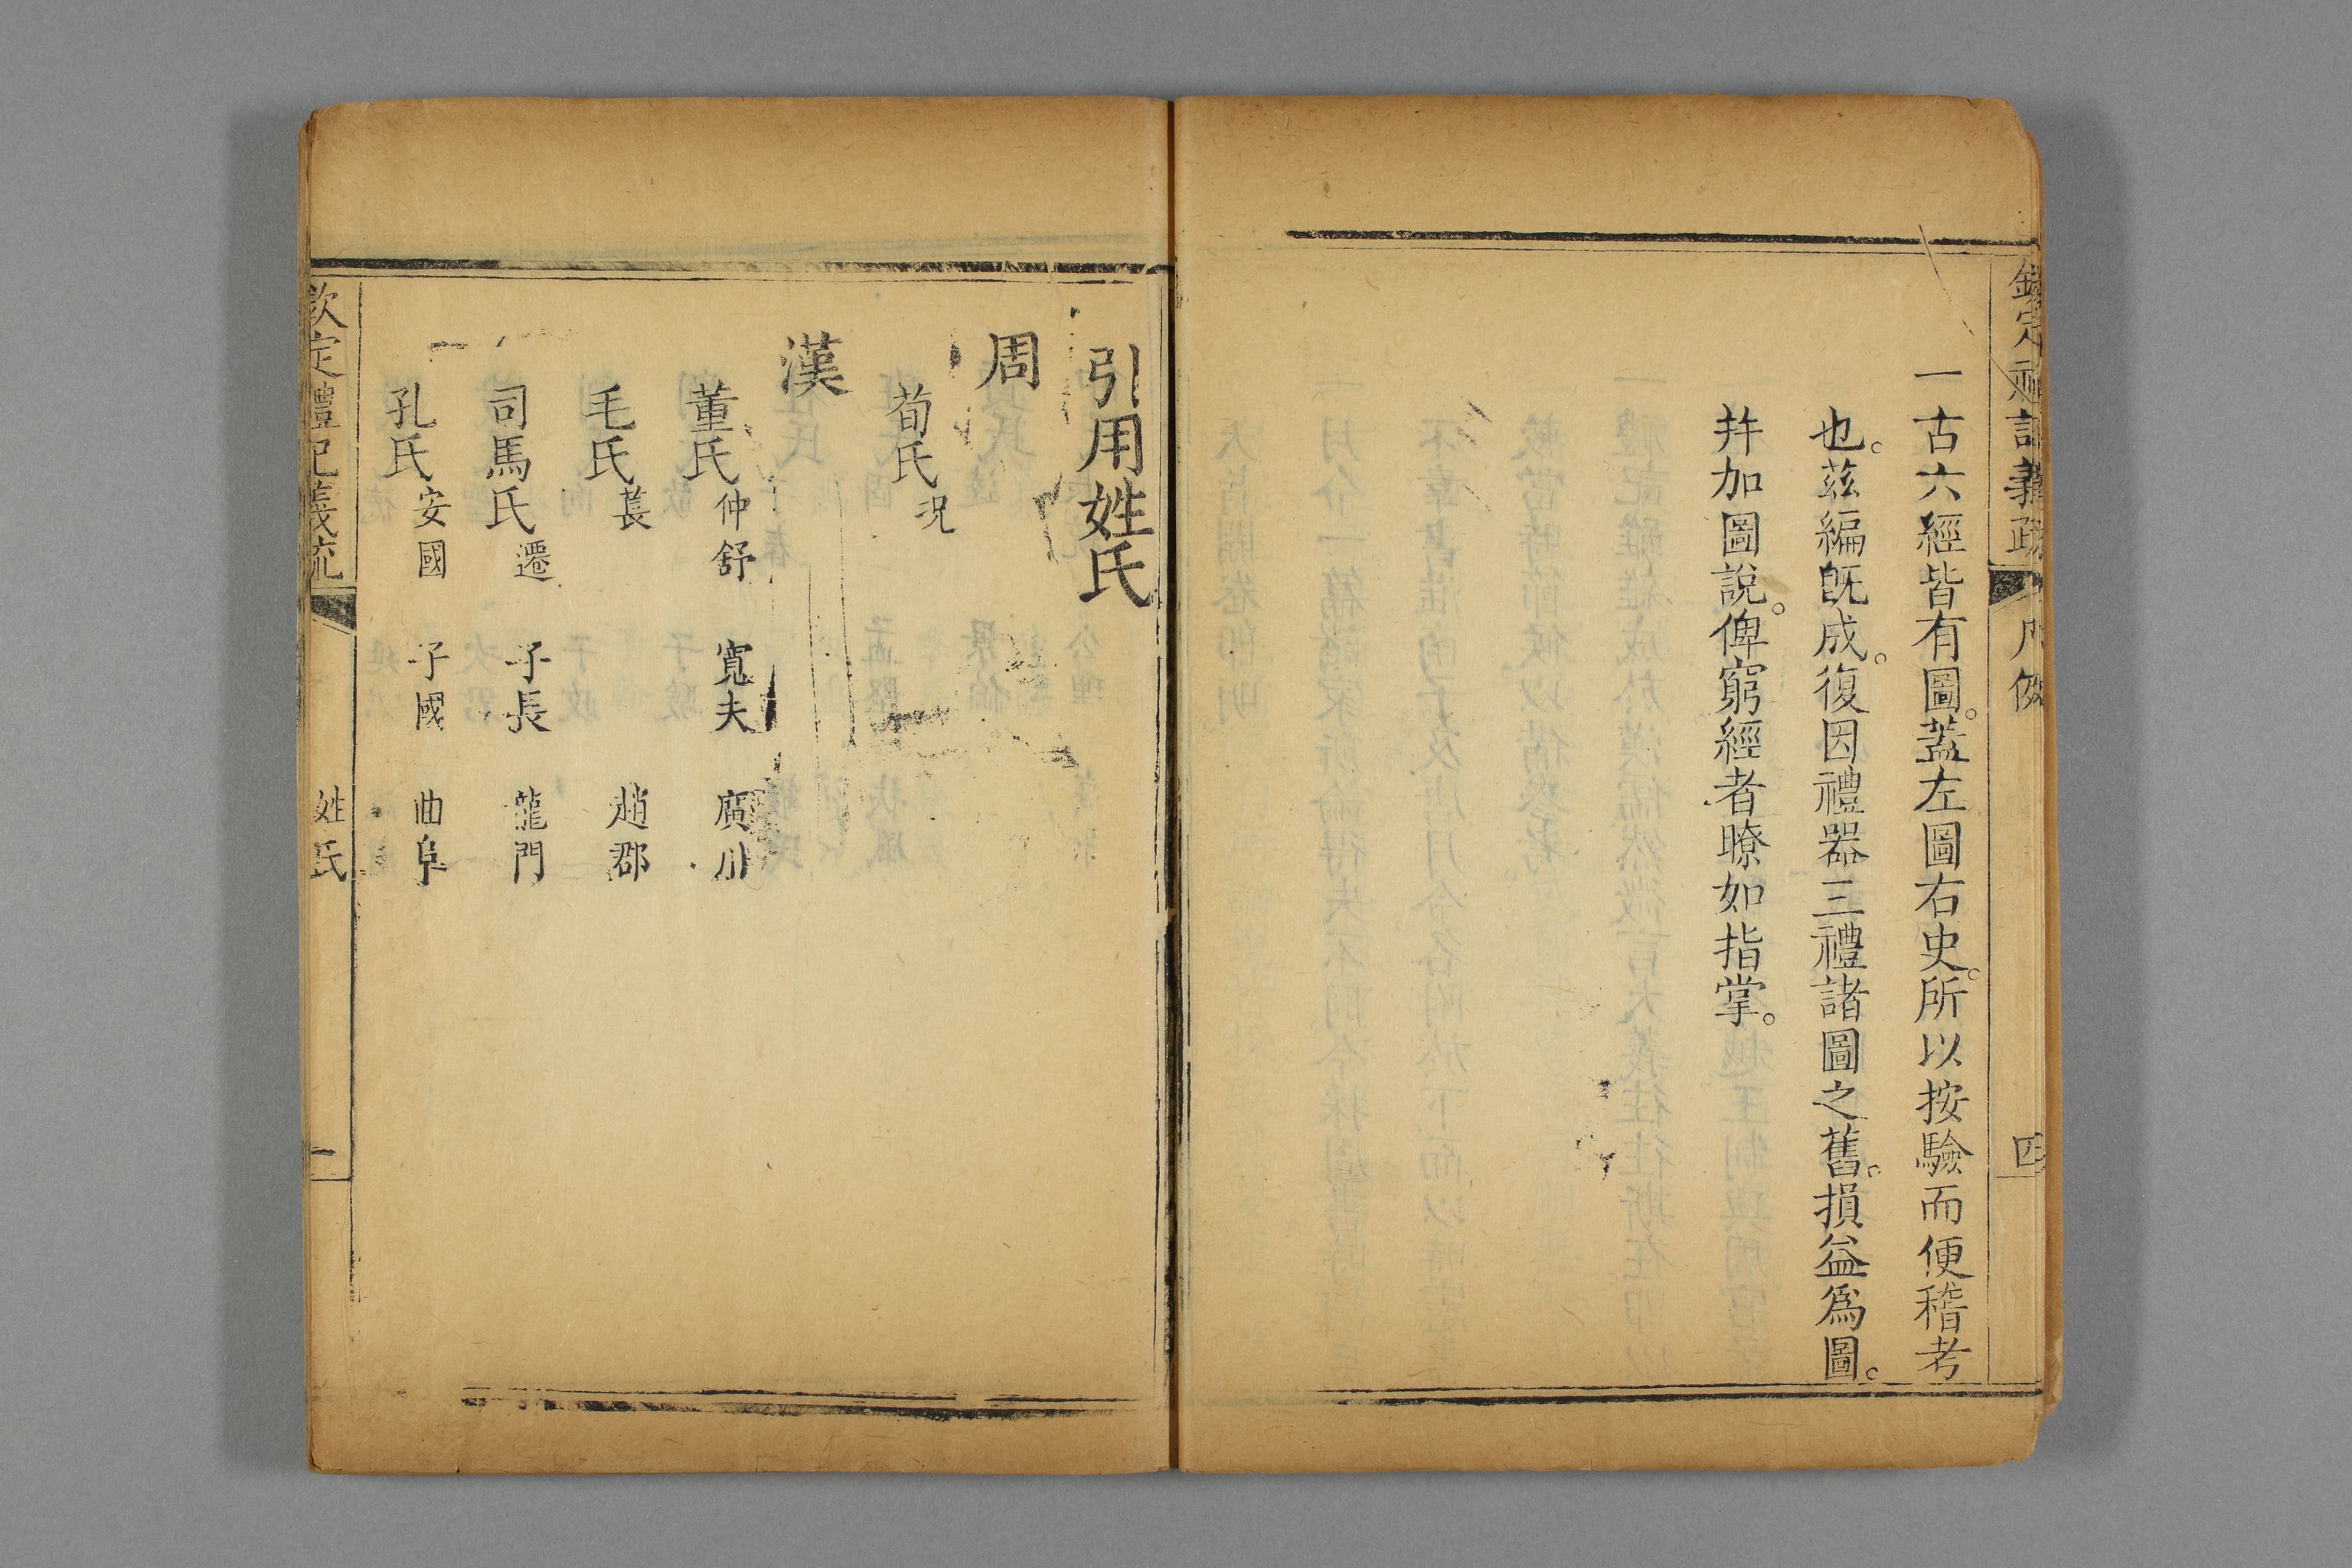 欽定禮記義疏
凡例
四
一古六經皆有圖。蓋左圖右史。所以按驗而便稽考
也。茲編旣成。復因禮器三禮諸圖之舊。損益爲圖。
幷加圖說。俾窮經者瞭如指掌。
引用姓氏
周
荀氏況
漢
董氏仲舒 寬夫 廣川
毛氏萇 趙郡
司馬氏遷 子長 龍門
孔氏安國 子國 曲阜
欽定禮記義疏
姓氏
一